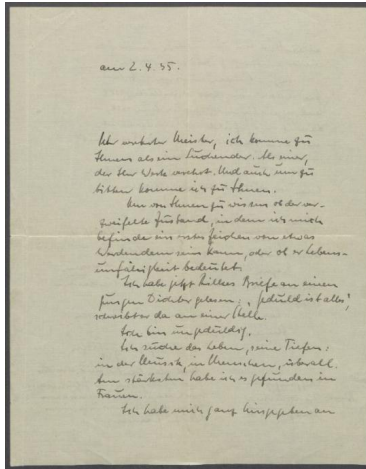 am 2.4.45.
Sehr verehrter Meister, ich komme zu
Ihnen als ein Suchender. Als einer,
der Ihr Werk verehrt. Und auch um zu
bitten komme ich zu Ihnen.
Um von Ihnen zu wissen ob der ver-
zweifelte Zustand, in dem ich mich
befinde ein erstes Zeichen von etwas
Werdendem sein kann, oder ob er Lebens-
unfähigkeit bedeutet.
Ich habe jetzt Rilkes Briefe an einen
jungen Dichter gelesen, „Geduld ist alles",
schreibt er da an einer Stelle.
Ich bin ungeduldig.
Ich suche das Leben, seine Tiefen:
in der Musik, in Menschen, überall.
Am stärksten habe ich es gefunden in
Frauen.
Ich habe mich ganz hingegeben an